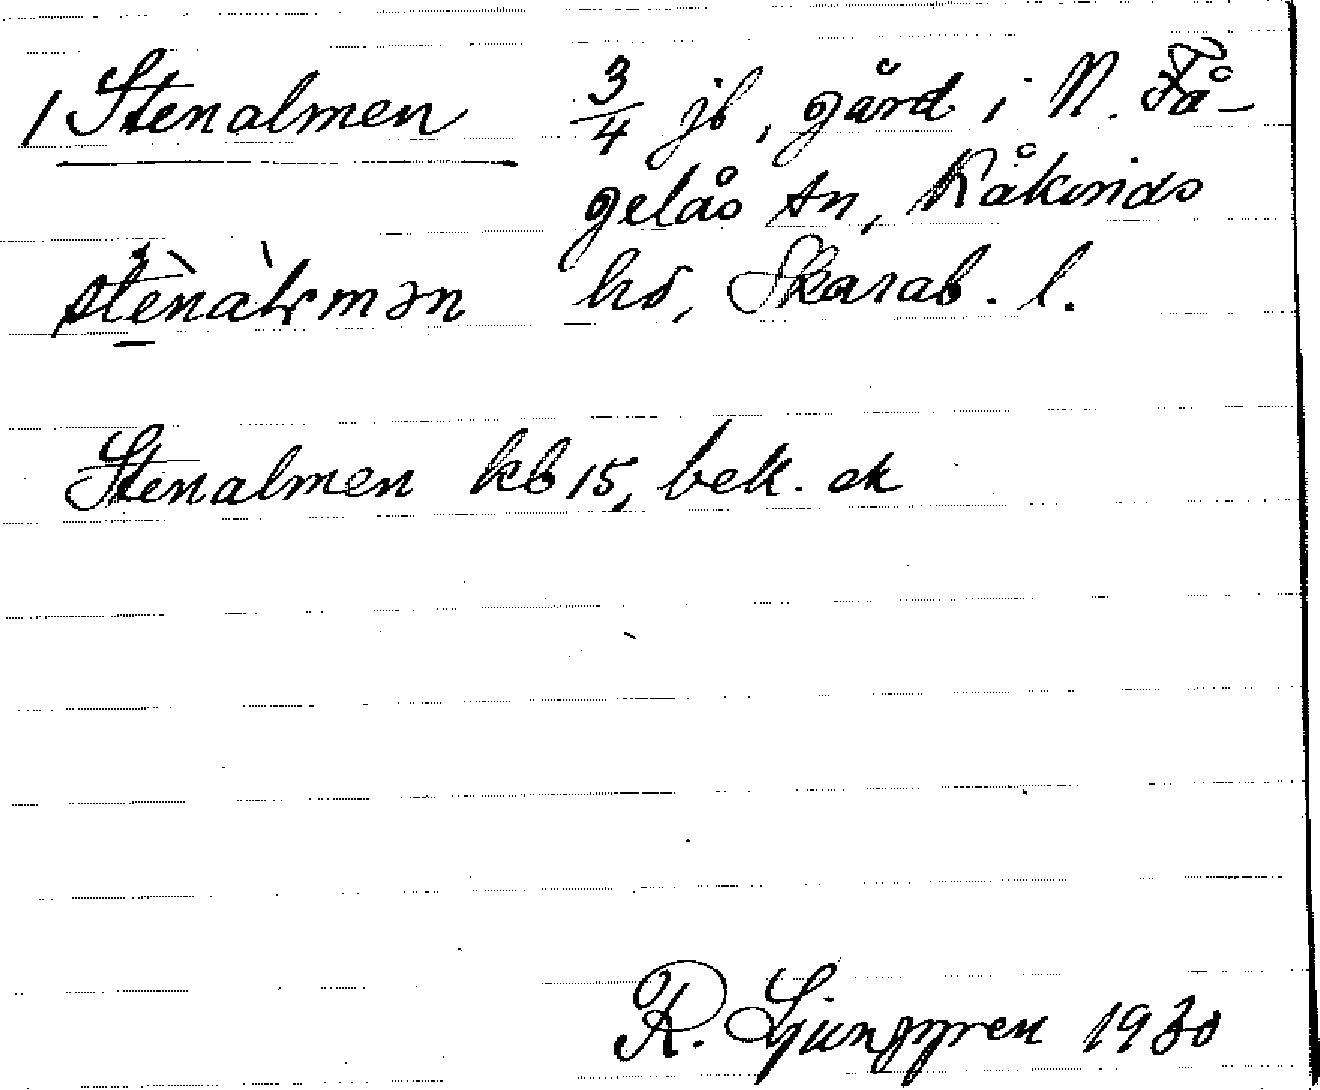 1 Stenalmen 3/4 jb, gård i N. Få-
gelås sn, Kåkinds
hd, Skarab. l.
stènàlmən
Stenalmen kb 15, bek. ek
R. Ljunggren 1930